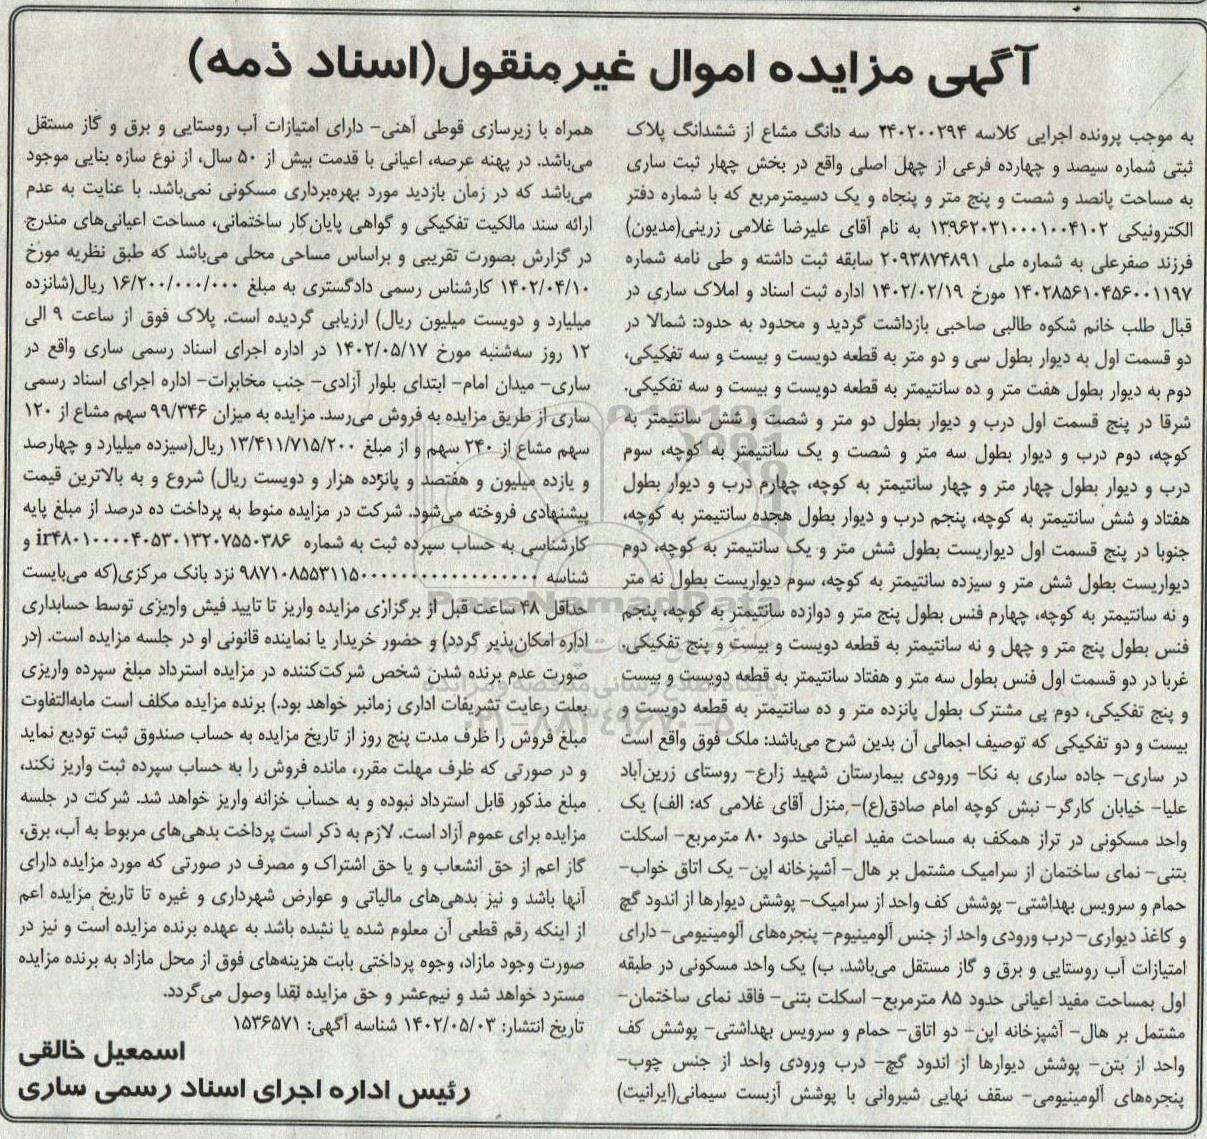 آگهی مزایده اموال غیرمنقول(اسناد ذمه)
به موجب پرونده اجرایی کلاسه ۲۴۰۲۰۰۲۹۴ سه دانگ مشاع از ششدانگ پلاک
ثبتی شماره سیصد و چهارده فرعی از چهل اصلی واقع در بخش چهار ثبت ساری
به مساحت پانصد و شصت و پنج متر و پنجاه و یک دسیمترمربع که با شماره دفتر
الکترونیکی ۱۳۹۶۲۰۳۱۰۰۰۱۰۰۴۱۰۲ به نام آقای علیرضا غلامی زرینی(مدیون)
فرزند صفرعلی به شماره ملی ۲۰۹۳۸۷۴۸۹۱ سابقه ثبت داشته و طی نامه شماره
۱۴۰۲۸۵۶۱۰۴۵۶۰۰۱۱۹۷ مورخ ۱۴۰۲/۰۲/۱۹ اداره ثبت اسناد و املاک ساری در
قبال طلب خانم شکوه طالبی صاحبی بازداشت گردید و محدود به حدود: شمالا در
دو قسمت اول به دیوار بطول سی و دو متر به قطعه دویست و بیست و سه تفکیکی،
دوم به دیوار بطول هفت متر و ده سانتیمتر به قطعه دویست و بیست و سه تفکیکی.
شرقا در پنج قسمت اول درب و دیوار بطول دو متر و شصت و شش سانتیمتر به
کوچه، دوم درب و دیوار بطول سه متر و شصت و یک سانتیمتر به کوچه، سوم
درب و دیوار بطول چهار متر و چهار سانتیمتر به کوچه، چهارم درب و دیوار بطول
هفتاد و شش سانتیمتر به کوچه، پنجم درب و دیوار بطول هجده سانتیمتر به کوچه،
جنوبا در پنج قسمت اول دیواریست بطول شش متر و یک سانتیمتر به کوچه، دوم
دیواریست بطول شش متر و سیزده سانتیمتر به کوچه، سوم دیواریست بطول نه متر
و نه سانتیمتر به کوچه، چهارم فنس بطول پنج متر و دوازده سانتیمتر به کوچه، پنجم
فنس بطول پنج متر و چهل و نه سانتیمتر به قطعه دویست و بیست و پنج تفکیکی.
غربا در دو قسمت اول فنس بطول سه متر و هفتاد سانتیمتر به قطعه دویست و بیست
و پنج تفکیکی، دوم پی مشترک بطول پانزده متر و ده سانتیمتر به قطعه دویست و
بیست و دو تفکیکی که توصیف اجمالی آن بدین شرح می‌باشد: ملک فوق واقع است
در ساری- جاده ساری به نکا- ورودی بیمارستان شهید زارع- روستای زرین‌آباد
علیا- خیابان کارگر- نبش کوچه امام صادق(ع)- منزل آقای غلامی که: الف) یک
واحد مسکونی در تراز همکف به مساحت مفید اعیانی حدود ۸۰ مترمربع- اسکلت
بتنی- نمای ساختمان از سرامیک مشتمل بر هال- آشپزخانه اپن- یک اتاق خواب-
حمام و سرویس بهداشتی- پوشش کف واحد از سرامیک- پوشش دیوارها از اندود گچ
و کاغذ دیواری- درب ورودی واحد از جنس آلومینیوم- پنجره‌های آلومینیومی- دارای
امتیازات آب روستایی و برق و گاز مستقل می‌باشد. ب) یک واحد مسکونی در طبقه
اول بمساحت مفید اعیانی حدود ۸۵ مترمربع- اسکلت بتنی- فاقد نمای ساختمان-
مشتمل بر هال- آشپزخانه اپن- دو اتاق- حمام و سرویس بهداشتی- پوشش کف
واحد از بتن- پوشش دیوارها از اندود گچ- درب ورودی واحد از جنس چوب-
پنجره‌های آلومینیومی- سقف نهایی شیروانی با پوشش آزبست سیمانی(ایرانیت)
همراه با زیرسازی قوطی آهنی- دارای امتیازات آب روستایی و برق و گاز مستقل
می‌باشد. در پهنه عرصه، اعیانی با قدمت بیش از ۵۰ سال، از نوع سازه بنایی موجود
می‌باشد که در زمان بازدید مورد بهره‌برداری مسکونی نمی‌باشد. با عنایت به عدم
ارائه سند مالکیت تفکیکی و گواهی پایان‌کار ساختمانی، مساحت اعیانی‌های مندرج
در گزارش بصورت تقریبی و براساس مساحی محلی می‌باشد که طبق نظریه مورخ
۱۴۰۲/۰۴/۱۰ کارشناس رسمی دادگستری به مبلغ ۱۶/۲۰۰/۰۰۰/۰۰۰ ریال(شانزده
میلیارد و دویست میلیون ریال) ارزیابی گردیده است. پلاک فوق از ساعت ۹ الی
۱۲ روز سه‌شنبه مورخ ۱۴۰۲/۰۵/۱۷ در اداره اجرای اسناد رسمی ساری واقع در
ساری- میدان امام- ابتدای بلوار آزادی- جنب مخابرات- اداره اجرای اسناد رسمی
ساری از طریق مزایده به فروش می‌رسد. مزایده به میزان ۹۹/۳۴۶ سهم مشاع از ۱۲۰
سهم مشاع از ۲۴۰ سهم و از مبلغ ۱۳/۴۱۱/۷۱۵/۲۰۰ ریال(سیزده میلیارد و چهارصد
و یازده میلیون و هفتصد و پانزده هزار و دویست ریال) شروع و به بالاترین قیمت
پیشنهادی فروخته می‌شود. شرکت در مزایده منوط به پرداخت ده درصد از مبلغ پایه
کارشناسی به حساب سپرده ثبت به شماره ir۴۸۰۱۰۰۰۰۴۰۵۳۰۱۳۲۰۷۵۵۰۳۸۶ و
شناسه نزد بانک مرکزی(که می‌بایست
حداقل ۴۸ ساعت قبل از برگزاری مزایده واریز تا تایید فیش واریزی توسط حسابداری
اداره امکان‌پذیر گردد) و حضور خریدار یا نماینده قانونی او در جلسه مزایده است. (در
صورت عدم برنده شدن شخص شرکت‌کننده در مزایده استرداد مبلغ سپرده واریزی
بعلت رعایت تشریفات اداری زمانبر خواهد بود.) برنده مزایده مکلف است مابه‌التفاوت
مبلغ فروش را ظرف مدت پنج روز از تاریخ مزایده به حساب صندوق ثبت تودیع نماید
و در صورتی که ظرف مهلت مقرر، مانده فروش را به حساب سپرده ثبت واریز نکند،
مبلغ مذکور قابل استرداد نبوده و به حساب خزانه واریز خواهد شد. شرکت در جلسه
مزایده برای عموم آزاد است. لازم به ذکر است پرداخت بدهی‌های مربوط به آب، برق،
گاز اعم از حق انشعاب و یا حق اشتراک و مصرف در صورتی که مورد مزایده دارای
آنها باشد و نیز بدهی‌های مالیاتی و عوارض شهرداری و غیره تا تاریخ مزایده اعم
از اینکه رقم قطعی آن معلوم شده یا نشده باشد به عهده برنده مزایده است و نیز در
صورت وجود مازاد، وجوه پرداختی بابت هزینه‌های فوق از محل مازاد به برنده مزایده
مسترد خواهد شد و نیم‌عشر و حق مزایده نقدا وصول می‌گردد.
تاریخ انتشار: ۱۴۰۲/۰۵/۰۳ شناسه آگهی: ۱۵۳۶۵۷۱
اسمعیل خالقی
رئیس اداره اجرای اسناد رسمی ساری
ParsNamadData
پایگاه اطلاع رسانی مناقصه و مزایده
۰۲۱-۸۸۳۴۹۶۷۰-۵